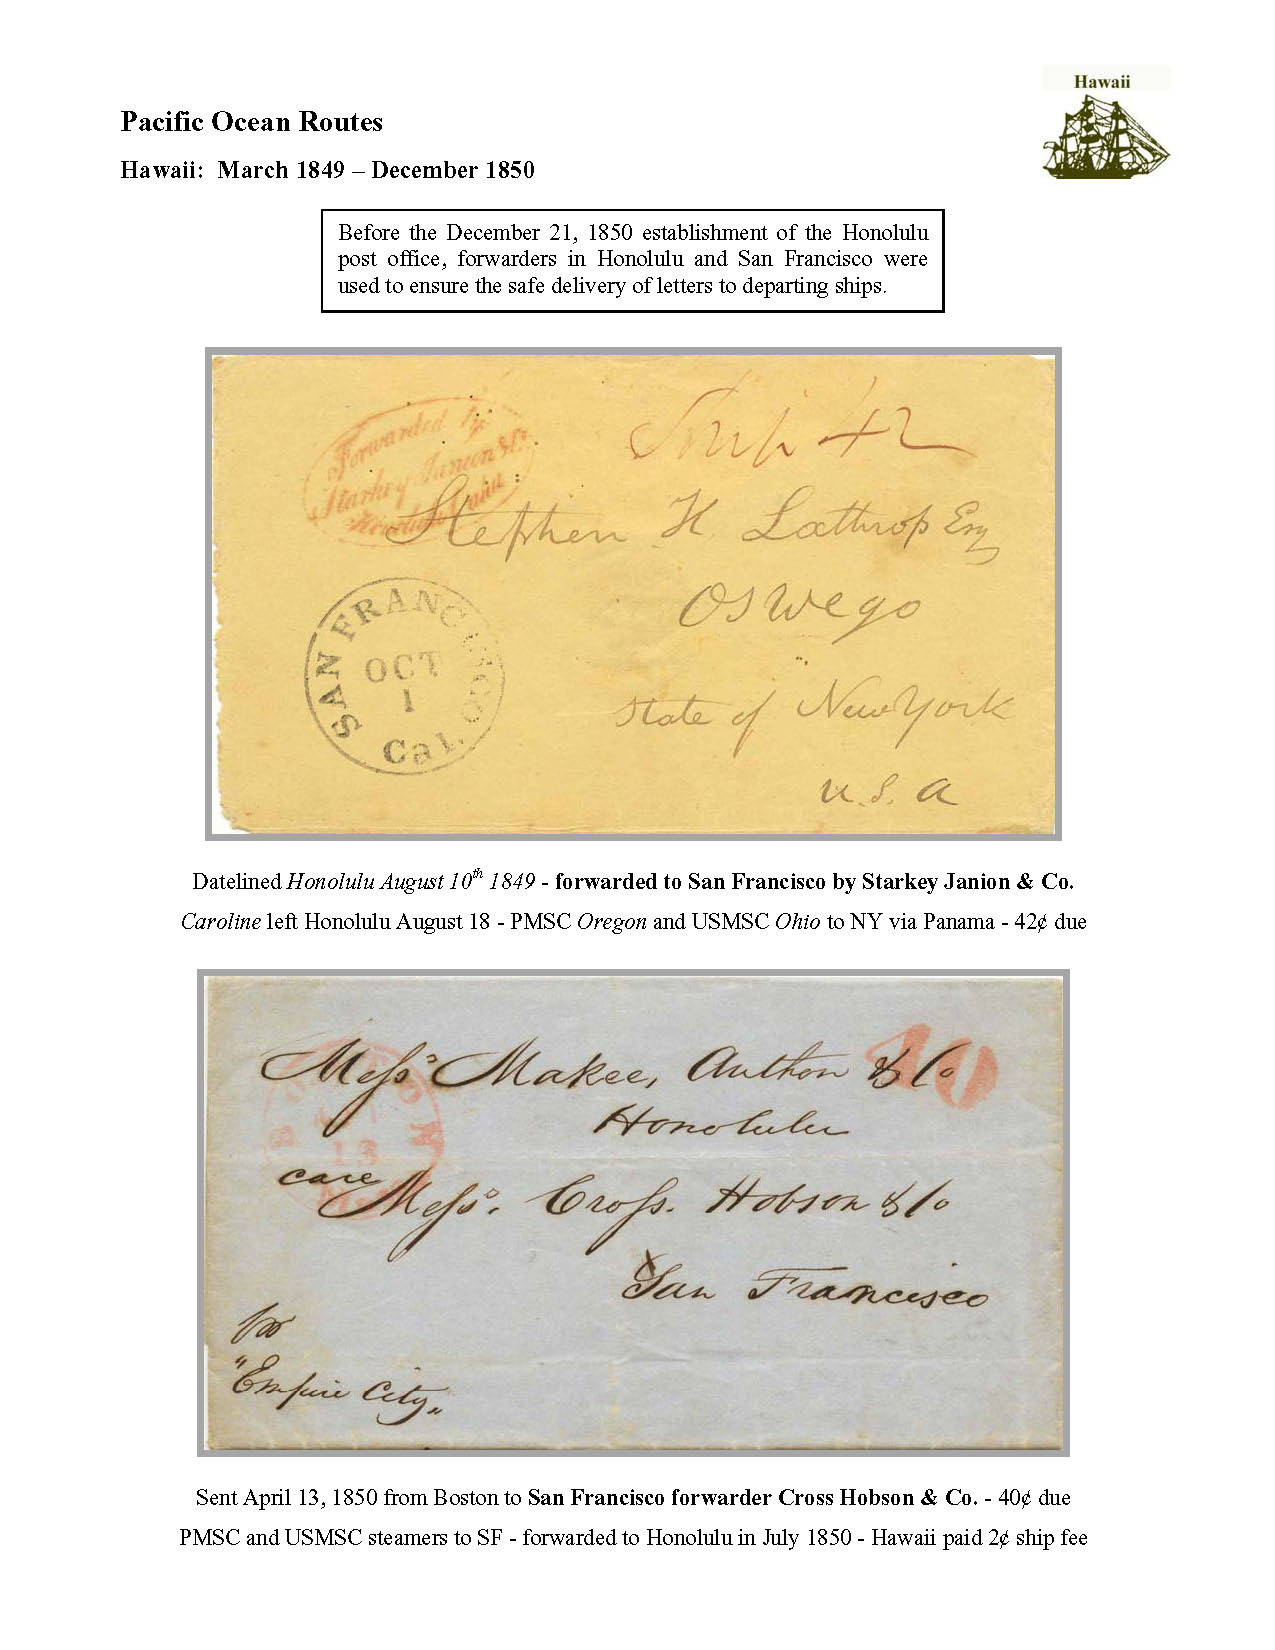 Hawaii
Pacific Ocean Routes
Hawaii: March 1849 – December 1850
Before the December 21, 1850 establishment of the Honolulu
post office, forwarders in Honolulu and San Francisco were
used to ensure the safe delivery of letters to departing ships.
Forwarded by
Starkey Janion & Co.
Honolulu Oahu
Ship 42
Stephen H. Lathrop Esq
Oswego
State of New York
U.S.A
SAN FRANCISCO
OCT
1
Cal.
Datelined Honolulu August 10th 1849 - forwarded to San Francisco by Starkey Janion & Co.
Caroline left Honolulu August 18 - PMSC Oregon and USMSC Ohio to NY via Panama - 42¢ due
40
BOSTON
13
Messs. Makee, Anthon & Co
Honolulu
care Messs. Cross. Hobson & Co
San Francisco
per
"Empire City"
Sent April 13, 1850 from Boston to San Francisco forwarder Cross Hobson & Co. - 40¢ due
PMSC and USMSC steamers to SF - forwarded to Honolulu in July 1850 - Hawaii paid 2¢ ship fee